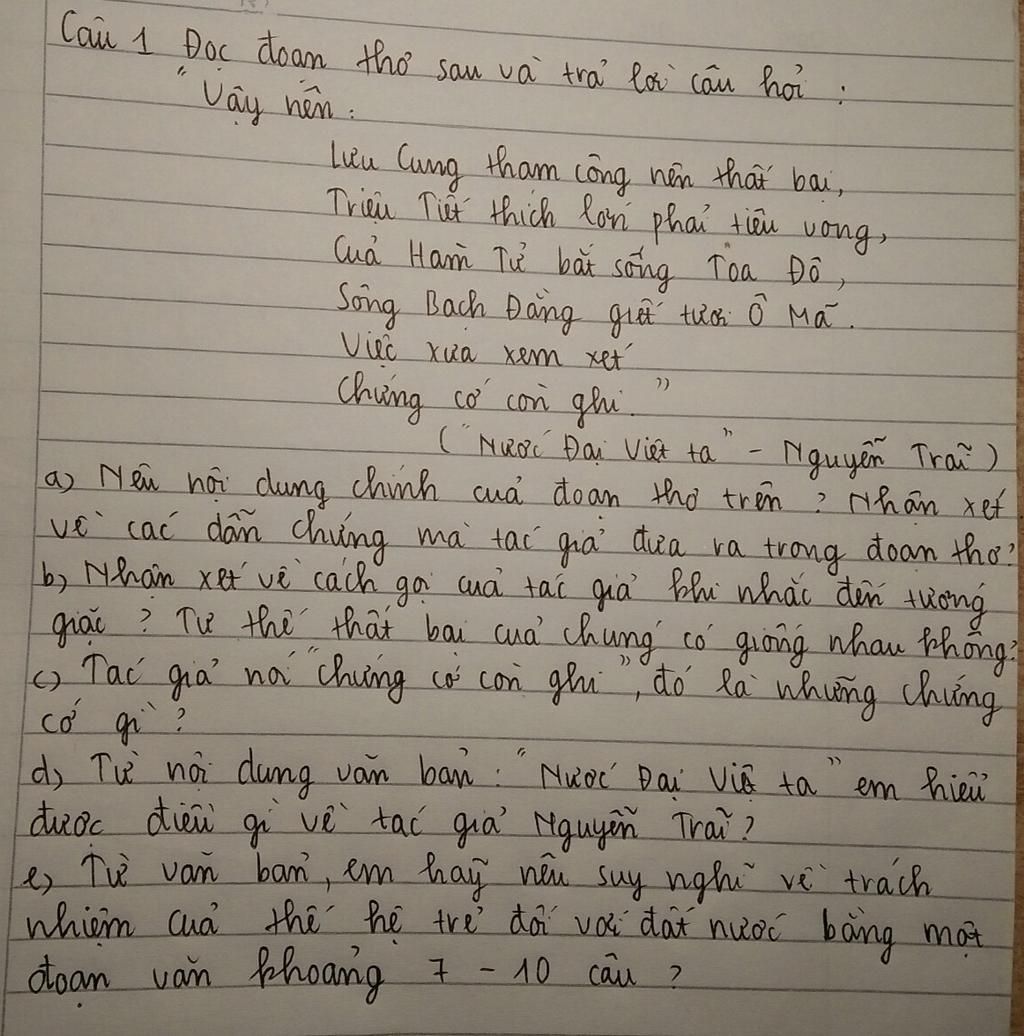 Câu 1 Đọc đoạn thơ sau và trả lời câu hỏi :
"Vậy nên :
Lưu Cung tham công nên thất bại,
Triệu Tiết thích lớn phải tiêu vong,
Cửa Hàm Tử bắt sống Toa Đô,
Sông Bạch Đằng giết tươi Ô Mã.
Việc xưa xem xét
Chứng cớ còn ghi."
("Nước Đại Việt ta" - Nguyễn Trãi)
a) Nêu nội dung chính của đoạn thơ trên ? Nhận xét
về các dẫn chứng mà tác giả đưa ra trong đoạn thơ?
b) Nhận xét về cách gọi của tác giả khi nhắc đến tướng
giặc ? Tư thế thất bại của chúng có giống nhau không?
c) Tác giả nói "chứng cớ còn ghi", đó là những chứng
cớ gì ?
d) Từ nội dung văn bản : "Nước Đại Việt ta" em hiểu
được điều gì về tác giả Nguyễn Trãi ?
e) Từ văn bản, em hãy nêu suy nghĩ về trách
nhiệm của thế hệ trẻ đối với đất nước bằng một
đoạn văn khoảng 7 - 10 câu ?